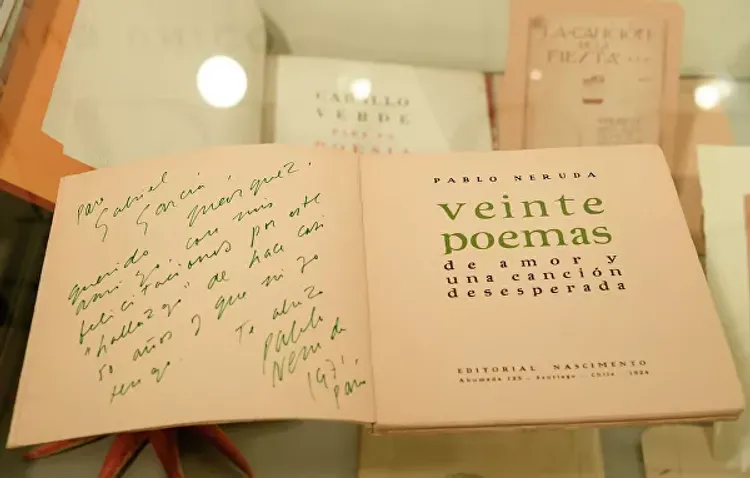 LA CANCION
DE LA
FIESTA
CABALLO
VERDE
PARA LA
POESIA
Para
Gabriel
García Marquez,
querido
amigo, con mis
felicitaciones por este
"hallazgo" de hace casi
50 años y que ni yo
tengo.
Te abraza
Pablo
Neruda
1971,
Paris
PABLO NERUDA
veinte
poemas
de amor y
una canción
desesperada
EDITORIAL NASCIMENTO
Ahumada 125 - Santiago - Chile 1924